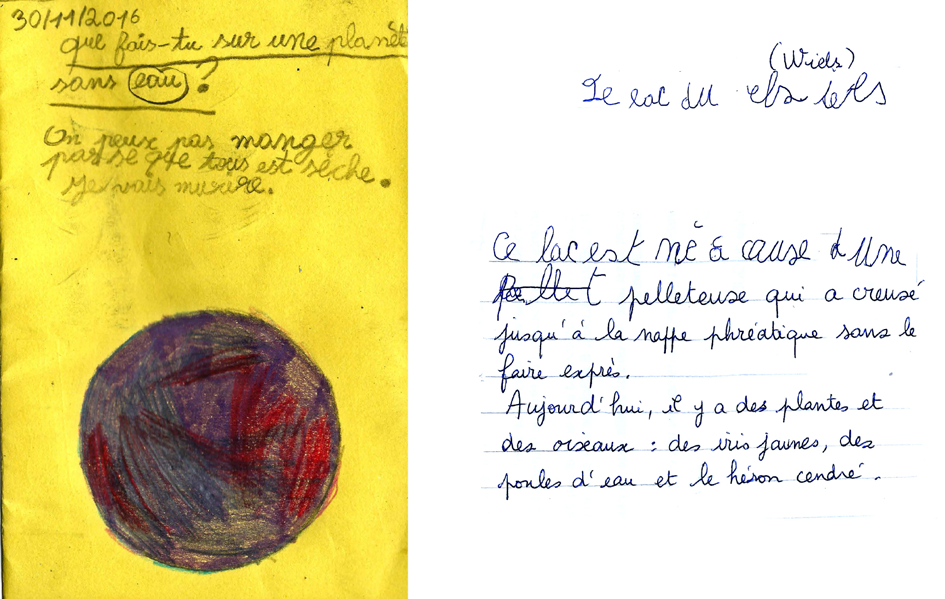 30/11/2016
que fais-tu sur une planèt
sans eau ?
On peux pas manger
parse que tous est sèche.
Je vais murire.
(Wiels)
Le lac du
Ce lac est né à cause d'une
pelleteuse qui a creusé
jusqu'à la nappe phréatique sans le
faire exprès.
Aujourd'hui, il y a des plantes et
des oiseaux : des iris jaunes, des
poules d'eau et le héron cendré.